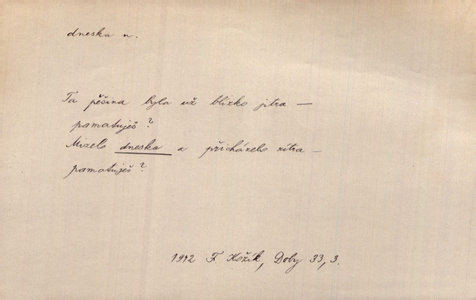 dneska n.
Ta pěšina byla už blízko jitra —
pamatuješ?
Mizelo dneska a přicházelo zítra —
pamatuješ?
1942 F. Kožík, Doby 33, 3.